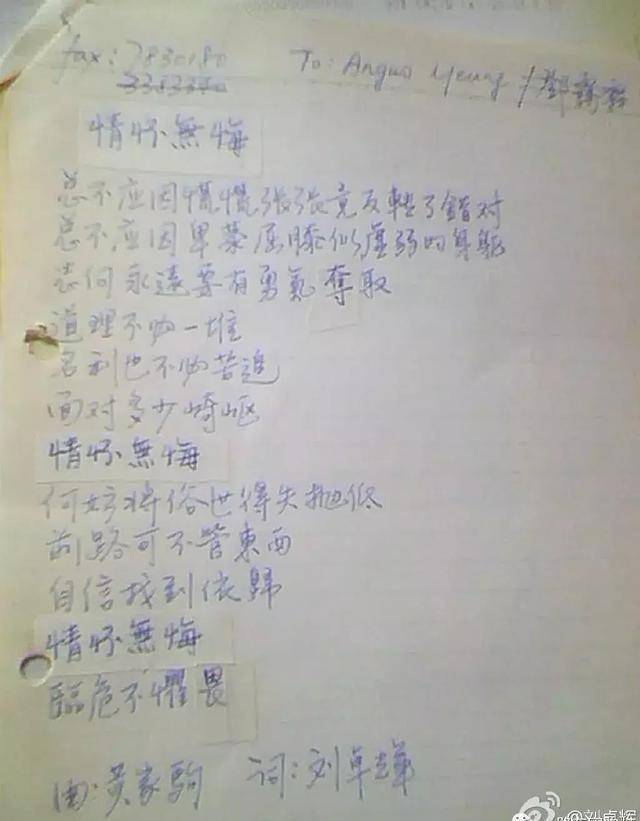 fax: 7830180 To: Anguo Yeung / 鄧
情怀無悔
总不应因慌慌张张竟反轉了錯对
总不应因卑恭屈膝似虛弱的身軀
为何永遠要有勇氣奪取
道理不 一堆
名利也不 苦追
面对多少崎岖
情怀無悔
何妨将俗世得失抛低
前路可不管東西
自信找到依歸
情怀無悔
臨危不懼畏
曲:黃家駒 词:刘卓辉
@刘卓辉